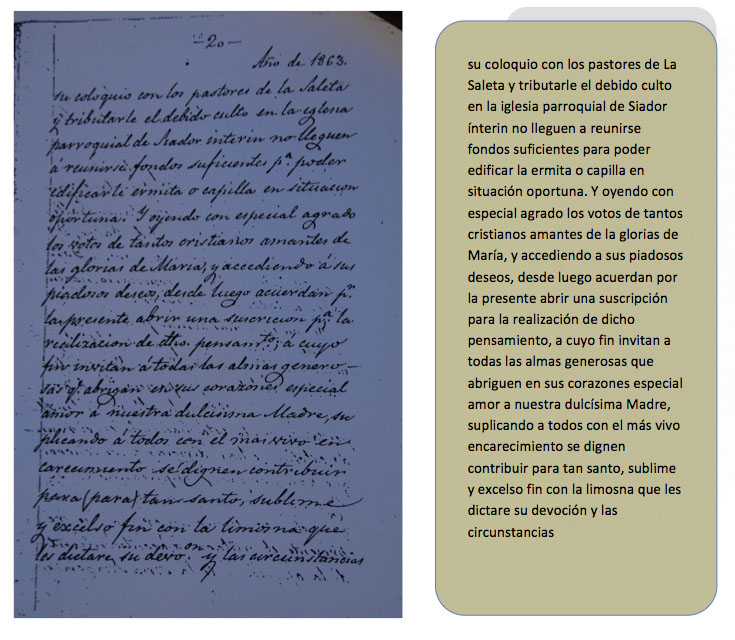 —20—
Año de 1863.
su coloquio con los pastores de la Saleta
y tributarle el debido culto en la eglesia
parroquial de Siador interin no lleguen
á reunirse fondos suficientes pª poder
edificarle ermita o capilla en situacion
oportuna. Y oyendo con especial agrado
los votos de tantos cristianos amantes de
las glorias de Maria, y accediendo á sus
piadosos deseos, desde luego acuerdan pr.
la presente abrir una suscricion pª la
realizacion de dho. pensamto., á cuyo
fin invitan á todas las almas genero-
sas qe. abrigan en sus corazones especial
amor á nuestra dulcisima Madre, su
plicando á todos con el mas vivo en
carecimiento se dignen contribuir
para (para) tan santo, sublime
y excelso fin con la limosna que
les dictare su devoon. y las circunstancias
su coloquio con los pastores de La
Saleta y tributarle el debido culto
en la iglesia parroquial de Siador
ínterin no lleguen a reunirse
fondos suficientes para poder
edificar la ermita o capilla en
situación oportuna. Y oyendo con
especial agrado los votos de tantos
cristianos amantes de la glorias de
María, y accediendo a sus piadosos
deseos, desde luego acuerdan por
la presente abrir una suscripción
para la realización de dicho
pensamiento, a cuyo fin invitan a
todas las almas generosas que
abriguen en sus corazones especial
amor a nuestra dulcísima Madre,
suplicando a todos con el más vivo
encarecimiento se dignen
contribuir para tan santo, sublime
y excelso fin con la limosna que les
dictare su devoción y las
circunstancias